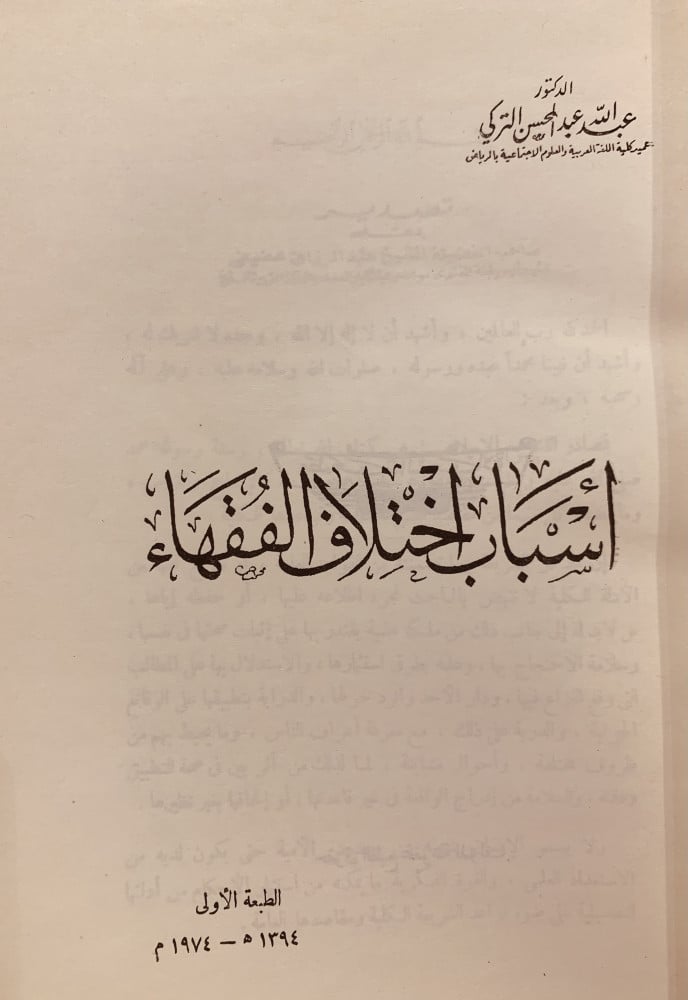 الدكتور
عبد الله عبد المحسن التركي
عميد كلية اللغة العربية والعلوم الاجتماعية بالرياض
أَسْبَابُ اخْتِلَافِ الفُقَهَاءِ
الطبعة الأولى
١٣٩٤ ه — ١٩٧٤ م